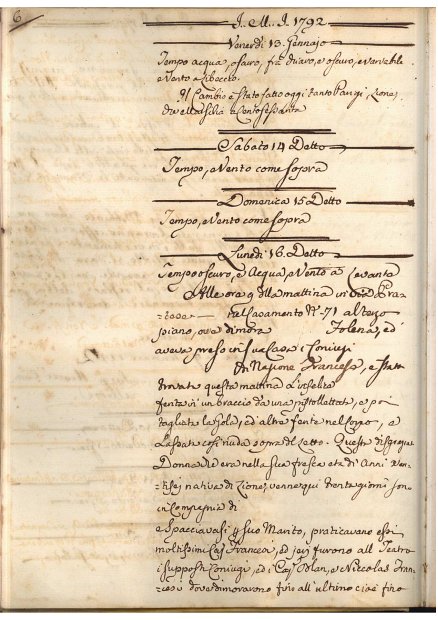 6
J. M. J. 1792
Venerdì 13. Gennajo
Tempo acqua, oscuro, frà chiaro, e oscuro, e variabile
e Vento a libeccio.
Il Cambio è stato fatto oggi tanto Parigi, Lione,
che Marsilia a Centosessanta
Sabato 14 Detto
Tempo, e Vento come sopra
Domenica 15 Detto
Tempo, e Vento come sopra
Lunedì 16. Detto
Tempo oscuro, e Acqua, e Vento a Levante
Alle ore 9 della mattina in
nel Casamento N.° 71 al terzo
piano, ove dimora Folena, e
aveva preso in sua Casa i Coniugi
di Nazione Francese, e
trovata questa mattina l'infelice
ferita in un braccio da una pistollettata, e poi
tagliata la gola, ed altre ferite nel Corpo, e
lasciata così nuda sopra il Letto. Questa disgraziata
Donna era nella sua fresca età di Anni ven-
tisei nativa di Lione, venne qui trenta giorni sono
in Compagnia di
e Spacciavasi p suo Marito, praticavano essi
moltissimi Francesi, ed jeri furono all Teatro
i supposti Coniugi, ed i Polan, e Niccolas Fran-
cesi dove dimoravono fino all'ultimo cioè fino